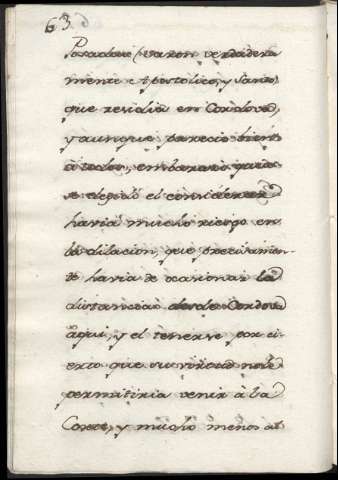 63.
Posadas (varon verdadera
mente Apostolico, y Santo,
que residia en Cordova),
y aunque parecio bien
à todos, embarazó que
se eligiesse el considerar
havia mucho riesgo en
la dilacion, que precisamen-
te havia de ocasionar la
distancia desde Cordova
aqui, y el tenerse por ci-
erto que su virtud no le
permitiria venir à la
Corte, y mucho menos al